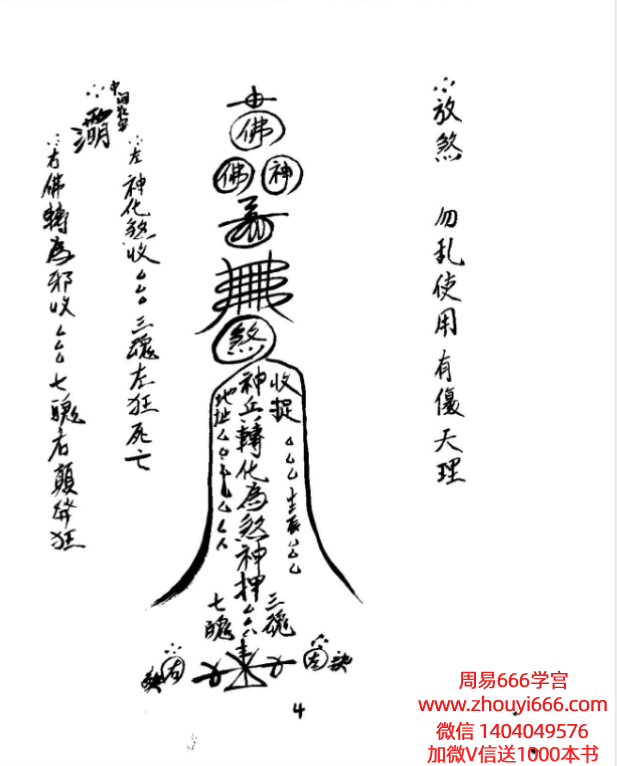 放煞 勿乱使用有傷天理
佛
佛 神
煞
收捉△△△生辰△△△
神兵轉化為煞神押△△△
地址△△△△△△△
三魂
七魄
左
右
中間
左神化煞收△△△三魂左狂死亡
右佛轉為邪收△△△七魄右顛發狂
4
周易666学宫
www.zhouyi666.com
微信 1404049576
加微V信送1000本书